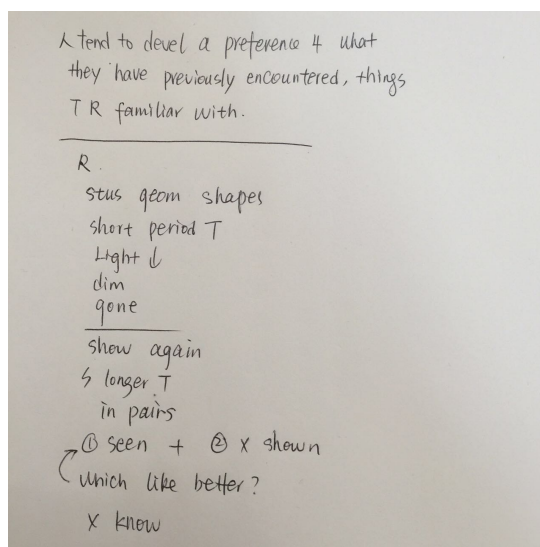 人 tend to devel a preference 4 what
they have previously encountered, things
T R familiar with.
R.
stus geom shapes
short period T
Light ↓
dim
gone
show again
longer T
in pairs
① seen + ② x shown
which like better?
x know